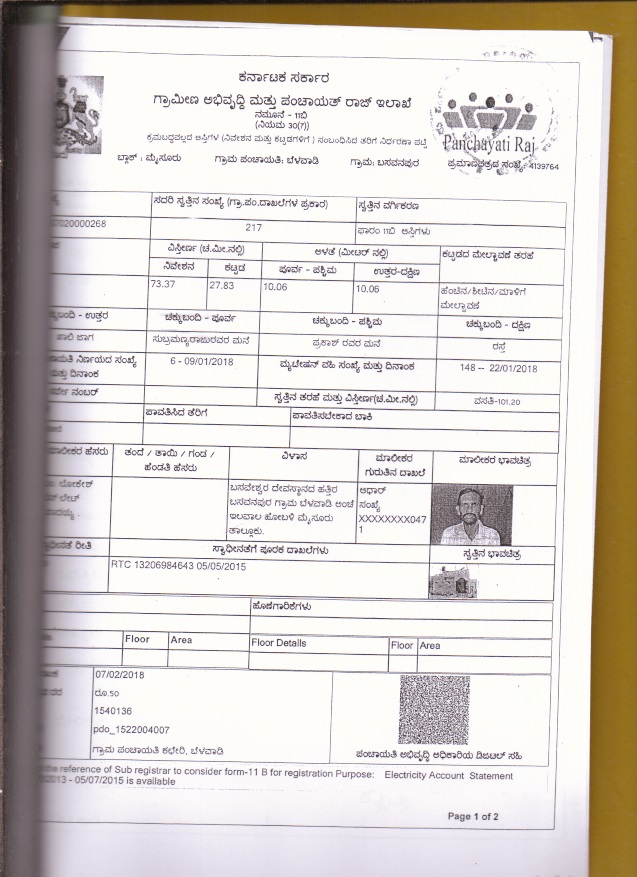 ಕರ್ನಾಟಕ ಸರ್ಕಾರ
ಗ್ರಾಮೀಣ ಅಭಿವೃದ್ಧಿ ಮತ್ತು ಪಂಚಾಯತ್ ರಾಜ್ ಇಲಾಖೆ
ನಮೂನೆ - 11ಬಿ
(ನಿಯಮ 30(7))
ಕ್ರಮಬದ್ಧವಲ್ಲದ ಆಸ್ತಿಗಳ (ನಿವೇಶನ ಮತ್ತು ಕಟ್ಟಡಗಳಿಗೆ) ಸಂಬಂಧಿಸಿದ ತೆರಿಗೆ ನಿರ್ಧರಣಾ ಪಟ್ಟಿ
Panchayati Raj
ಬ್ಲಾಕ್ : ಮೈಸೂರು ಗ್ರಾಮ ಪಂಚಾಯತಿ: ಬೆಳವಾಡಿ ಗ್ರಾಮ: ಬಸವನಪುರ ಪ್ರಮಾಣಪತ್ರದ ಸಂಖ್ಯೆ: 4139764
ಸದರಿ ಸ್ವತ್ತಿನ ಸಂಖ್ಯೆ (ಗ್ರಾ.ಪಂ.ದಾಖಲೆಗಳ ಪ್ರಕಾರ) ಸ್ವತ್ತಿನ ವರ್ಗೀಕರಣ
020000268 217 ಫಾರಂ 11ಬಿ ಆಸ್ತಿಗಳು
ವಿಸ್ತೀರ್ಣ (ಚ.ಮೀ.ನಲ್ಲಿ) ಅಳತೆ (ಮೀಟರ್ ನಲ್ಲಿ) ಕಟ್ಟಡದ ಮೇಲ್ಚಾವಣಿ ತರಹೆ
ನಿವೇಶನ ಕಟ್ಟಡ ಪೂರ್ವ - ಪಶ್ಚಿಮ ಉತ್ತರ-ದಕ್ಷಿಣ
73.37 27.83 10.06 10.06 ಹೆಂಚಿನ/ಶೀಟಿನ/ಮಾಳಿಗೆ
ಮೇಲ್ಚಾವಣಿ
- ಉತ್ತರ ಚಕ್ಕುಬಂದಿ - ಪೂರ್ವ ಚಕ್ಕುಬಂದಿ - ಪಶ್ಚಿಮ ಚಕ್ಕುಬಂದಿ - ದಕ್ಷಿಣ
ಖಾಲಿ ಜಾಗ ಸುಬ್ರಮಣ್ಯರಾಜುರವರ ಮನೆ ಪ್ರಕಾಶ್ ರವರ ಮನೆ ರಸ್ತೆ
ನಿರ್ಣಯದ ಸಂಖ್ಯೆ 6 - 09/01/2018 ಮ್ಯುಟೇಷನ್ ವಹಿ ಸಂಖ್ಯೆ ಮತ್ತು ದಿನಾಂಕ 148 -- 22/01/2018
ಮತ್ತು ದಿನಾಂಕ
ನಂಬರ್ ಸ್ವತ್ತಿನ ತರಹೆ ಮತ್ತು ವಿಸ್ತೀರ್ಣ(ಚ.ಮೀ.ನಲ್ಲಿ) ವಸತಿ-101.20
ಪಾವತಿಸಿದ ತೆರಿಗೆ ಪಾವತಿಸಬೇಕಾದ ಬಾಕಿ
ಮಾಲೀಕರ ಹೆಸರು ತಂದೆ / ತಾಯಿ / ಗಂಡ / ವಿಳಾಸ ಮಾಲೀಕರ ಮಾಲೀಕರ ಭಾವಚಿತ್ರ
ಹೆಂಡತಿ ಹೆಸರು ಗುರುತಿನ ದಾಖಲೆ
ಲೋಕೇಶ್ ಬಸವೇಶ್ವರ ದೇವಸ್ಥಾನದ ಹತ್ತಿರ ಆಧಾರ್
ಲೇಟ್ ಬಸವನಪುರ ಗ್ರಾಮ ಬೆಳವಾಡಿ ಅಂಚೆ ಸಂಖ್ಯೆ
ಇಲವಾಲ ಹೋಬಳಿ ಮೈಸೂರು XXXXXXXX047
ತಾಲ್ಲೂಕು. 1
ರೀತಿ ಸ್ವಾಧೀನತೆಗೆ ಪೂರಕ ದಾಖಲೆಗಳು ಸ್ವತ್ತಿನ ಭಾವಚಿತ್ರ
RTC 13206984643 05/05/2015
ಹೊಣೆಗಾರಿಕೆಗಳು
Floor Area Floor Details Floor Area
07/02/2018
ರೂ.50
1540136
pdo_1522004007
ಗ್ರಾಮ ಪಂಚಾಯತಿ ಕಛೇರಿ, ಬೆಳವಾಡಿ ಪಂಚಾಯತಿ ಅಭಿವೃದ್ಧಿ ಅಧಿಕಾರಿಯ ಡಿಜಿಟಲ್ ಸಹಿ
the reference of Sub registrar to consider form-11 B for registration Purpose: Electricity Account Statement
2013 - 05/07/2015 is available
Page 1 of 2